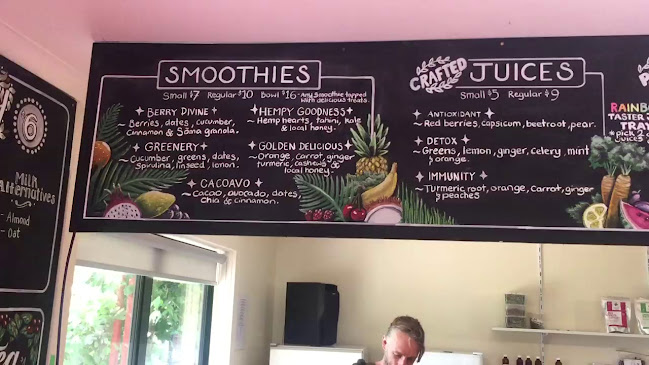 SMOOTHIES
Small $7 Regular $10 Bowl $16 - Any smoothie topped
with delicious treats.
BERRY DIVINE
~ Berries, dates, cucumber,
Cinnamon & Soma granola.
GREENERY
~ Cucumber, greens, dates,
Spirulina, linseed, lemon.
CACOAVO
~ Cacao, avocado, dates,
Chia & cinnamon.
HEMPY GOODNESS
~ Hemp hearts, tahini, kale
& local honey.
GOLDEN DELICIOUS
~ Orange, Carrot, ginger
turmeric, cashews &
local honey.
CRAFTED JUICES
Small $5 Regular $9
ANTIOXIDANT
~ Red berries, capsicum, beetroot, pear.
DETOX
~ Greens, lemon, ginger, celery, mint
& orange.
IMMUNITY
~ Turmeric root, orange, carrot, ginger
& peaches
RAINBO
TASTER
TRAY
* pick
juices
6
Milk
Alternatives
- Almond
- Oat
Tea